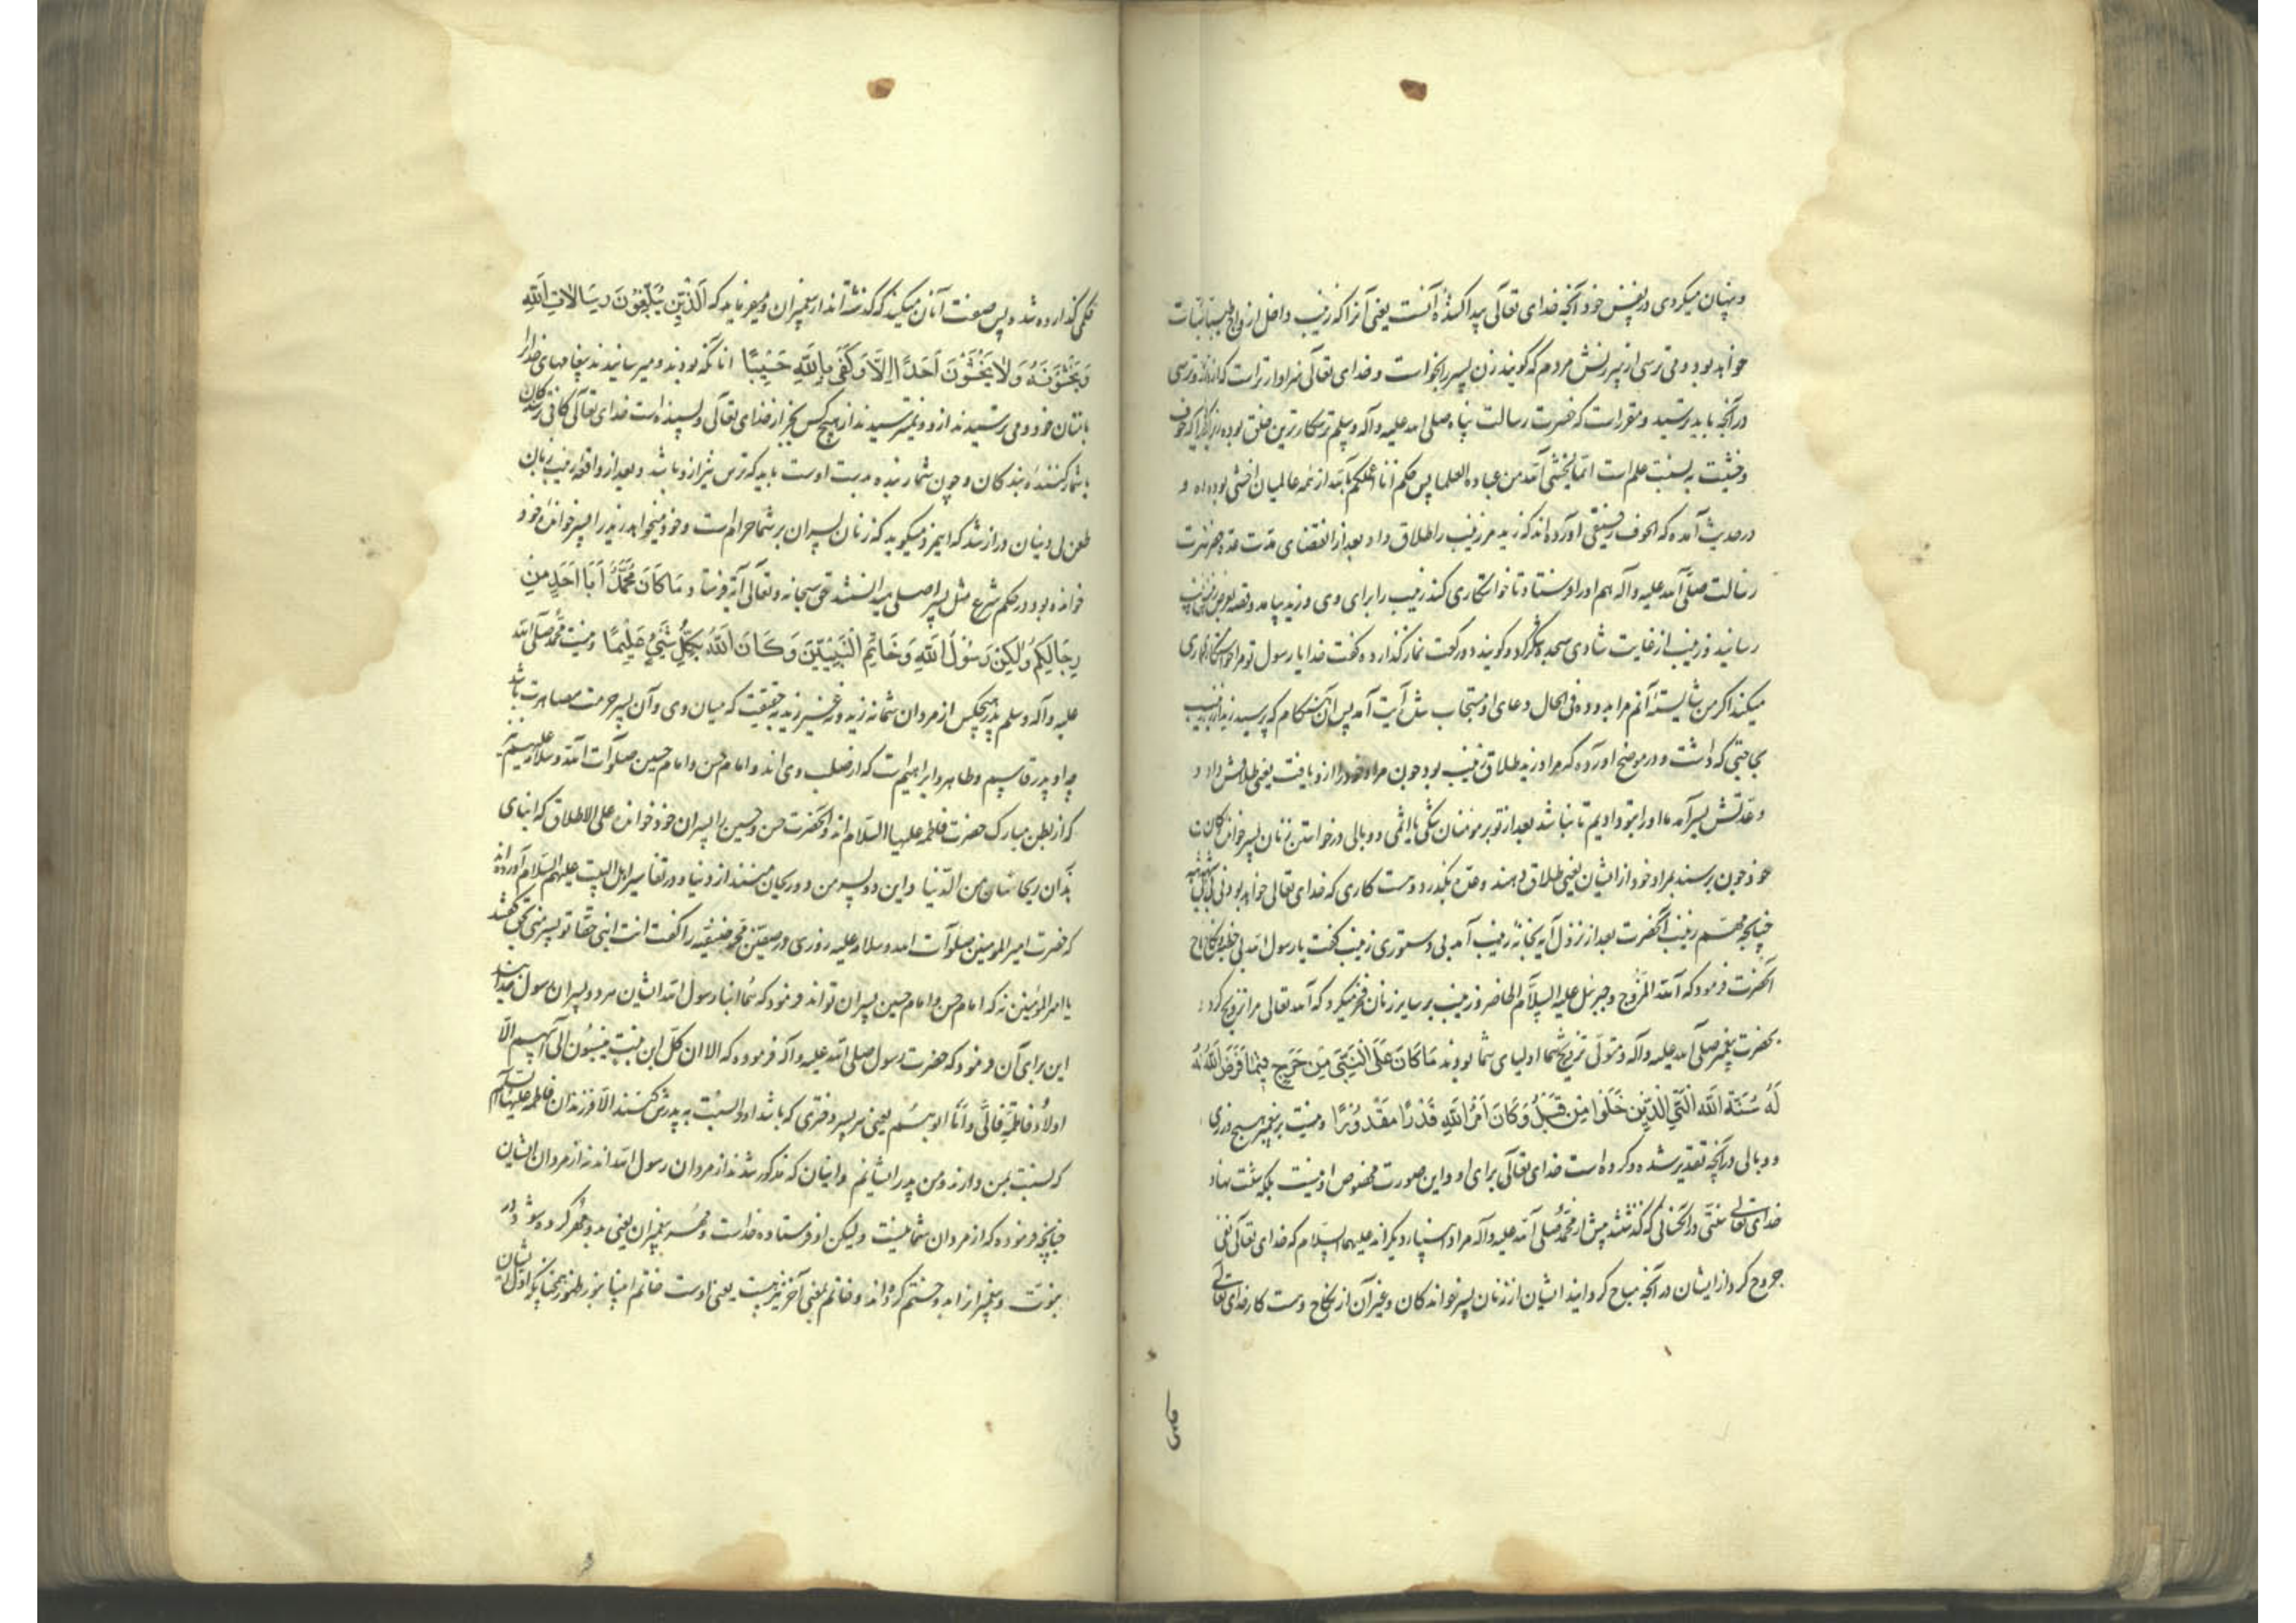 و پنهان میکردی در نفس خود آنچه خدای تعالی پیدا کنندهٔ آنست یعنی آنرا که زینب داخل ازواج طیبات
خواهد بود و می ترسی از سرزنش مردم که گویند زن پسر را بخواست و خدای تعالی سزاوار تراست که ازو ترسی
در آنچه باید ترسید و مقررست که حضرت رسالت پناه صلی الله علیه و آله و سلم ترسکارترین خلق بوده زیرا که خوف
و خشیت به نسبت علم است انما یخشی الله من عباده العلما پس بحکم انا اعلمکم بالله از همه عالمیان اخشی بوده و
در حدیث آمده که الخوف رفیقی آورده‌اند که زید مر زینب را طلاق داد بعد از انقضای مدت عده حضرت
رسالت صلی الله علیه و آله هم او را فرستاد تا خواستکاری کند زینب را برای وی و زید بیامد و قصه بعرض زینب
رسانید و زینب از غایت شادی سجده شکر کرد و گویند دو رکعت نماز گذارده گفت خدایا رسول تو مرا خواستکاری
میکند اگر من شایستهٔ آنم مرا بدو ده فی الحال دعای او مستجاب شد آیت آمد پس آن هنگام که برسید زید از زینب
بحاجتی که داشت و در موضح آورده که مراد زید طلاق زینب بود چون مراد خود را ازو یافت یعنی طلاقش داد و
و عدتش بسر آمد ما او را بتو دادیم تا نباشد بعد از تو بر مومنان تنگی یا اثمی و وبالی در خواستن زنان پسر خواندگان
خود چون برسند بمراد خود از ایشان یعنی طلاق دهند و عده بگذرد و هست کاری که خدای تعالی خواهد بودنی
چنانچه مهم زینب آنحضرت بعد از نزول آیه بخانهٔ زینب آمد بی دستوری زینب گفت یا رسول الله بی خطبه و نکاح
آنحضرت فرمود که الله المزوج و جبرئیل علیه السلام الحاضر و زینب بر سایر زنان فخر میکرد که الله تعالی مرا تزویج کرد
بحضرت پیغمبر صلی الله علیه و آله و متولی تزویج شما اولیای شما بودند مَا كَانَ عَلَى النَّبِيِّ مِنْ حَرَجٍ فِيمَا فَرَضَ اللَّهُ لَهُ
لَهُ سُنَّةَ اللَّهِ الَّتِي الَّذِينَ خَلَوْا مِنْ قَبْلُ وَكَانَ أَمْرُ اللَّهِ قَدَرًا مَقْدُورًا و نیست بر پیغمبر هیچ وزری
و وبالی در آنچه تقدیر شده و کرده است خدای تعالی برای او و این صورت مخصوص او نیست بلکه سنت نهاد
خدای تعالی سنتی در آنحالی که گذشتند پیش از محمد صلی الله علیه و آله مراد انبیاء دیگراند علیهم السلام که خدای تعالی نفی
حرج کرد از ایشان در آنچه مباح گردانید ایشان از زنان پسر خواندگان و غیر آن از نکاح و هست کار خدای تعالی
حکمی گذارده شده پس صفت آنان میکند که گذشته‌اند از پیغمبران و میفرماید که الَّذِينَ يُبَلِّغُونَ رِسَالَاتِ اللَّهِ
وَيَخْشَوْنَهُ وَلَا يَخْشَوْنَ أَحَدًا إِلَّا اللَّهَ وَكَفَى بِاللَّهِ حَسِيبًا آنانکه بودند و میرسانیدند پیغامهای خدا را
بامتان خود و می ترسیدند ازو و نمیترسیدند از هیچ کس بجز از خدای تعالی و پسنده است خدای تعالی کافی
یا شمار کنندهٔ بندکان و چون شمار بنده بدست اوست باید که ترس نیز ازو باشد و بعد از واقعه زینب زبان
طعن بی دینان دراز شد که این مرد میگوید که زنان پسران بر شما حرام است و خود میخواهد زید را پسر خوانده خود
خوانده بود و در حکم شرع مثل پسر اصلی میدانستند حق سبحانه و تعالی آیه فرستاد مَا كَانَ مُحَمَّدٌ أَبَا أَحَدٍ مِنْ
رِجَالِكُمْ وَلَكِنْ رَسُولَ اللَّهِ وَخَاتَمَ النَّبِيِّينَ وَكَانَ اللَّهُ بِكُلِّ شَيْءٍ عَلِيمًا و نیست محمد صلی الله
علیه و آله و سلم پدر هیچکس از مردان شما نه زید و نه غیر زید به حقیقت که میان وی و آن پسر حرمت مصاهرت باشد
چه او پدر قاسم و طاهر و ابراهیم است که از صلب وی اند و امام حسن و امام حسین صلوات الله و سلامه علیهم
که از بطن مبارک حضرت فاطمه علیها السلام‌اند و آنحضرت حسن و حسین را پسران خود خوانده علی الاطلاق که ابنای
هذان ریحانتان من الدنیا و این دو پسر من دو ریحان منند از دنیا و در تفاسیر اهل البیت علیهم السلام آورده‌اند
که حضرت امیر المومنین صلوات الله و سلامه علیه روزی در صفین محمد حنفیه را گفت انت ابنی حقا تو پسر منی بحق گفتند
یا امیر المؤمنین نه که امام حسن و امام حسین پسران تواند فرمود که هما ابنا رسول الله ایشان هر دو پسران رسول
این برای آن فرمود که حضرت رسول صلی الله علیه و آله فرموده که الا ان کل ابن بنت ینسبون الی ابیهم الا
اولاد فاطمة فانی و انا ابوهم یعنی هر پسر دختری که باشد او را نسبت به پدرش کنند الا فرزندان فاطمه علیها السلام
که نسبت بمن دارند و من پدر ایشانم و اینان که مذکور شدند از مردان رسول الله اند نه از مردان ایشان
چنانچه فرموده که از مردان شما نیست و لیکن او فرستاده خداست و مُهر پیغمبران یعنی بدو مهر کرده شود در
نبوت و پیغمبرانرا بدو ختم کرده‌اند و خاتم بمعنی آخر نیز هست یعنی اوست خاتم انبیا